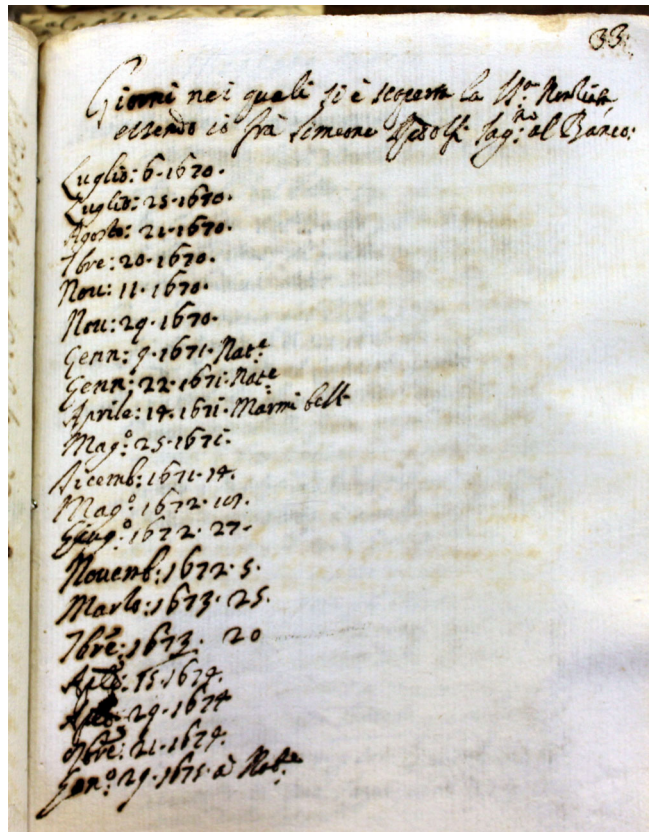 33.
Giorni nei quali si è scoperta la SS.ma Nuntiata
essendo io frà Simone sag.no al Banco:
Luglio: 6. 1670.
Luglio: 25. 1670.
Agosto: 21. 1670.
7bre: 20. 1670.
Nou: 11. 1670.
Nou: 29. 1670.
Genn: 9. 1671. Nat.e
Genn: 22. 1671. Nat.e
Aprile: 14. 1671. Marmi
Mag.o 25. 1671.
Dicemb: 1671. 14.
Mag.o 1672.
Giug.o 1672. 27.
Nouemb: 1672. 5.
Marto: 1673. 25.
7bre: 1673. 20
15. 1674.
29. 1674
21. 1674.
Gen.o 29. 1675. a